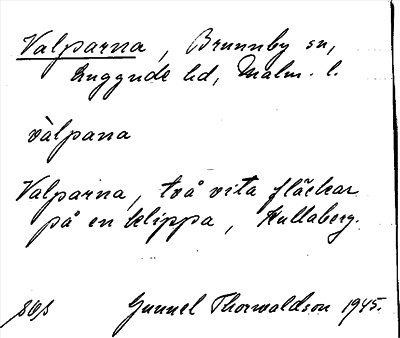 Valparna, Brunnby sn,
Luggude hd, Malm. l.
vàlpana
Valparna, två vita fläckar
på en klippa, Kullaberg.
Gunnel Thorwaldson 1945.